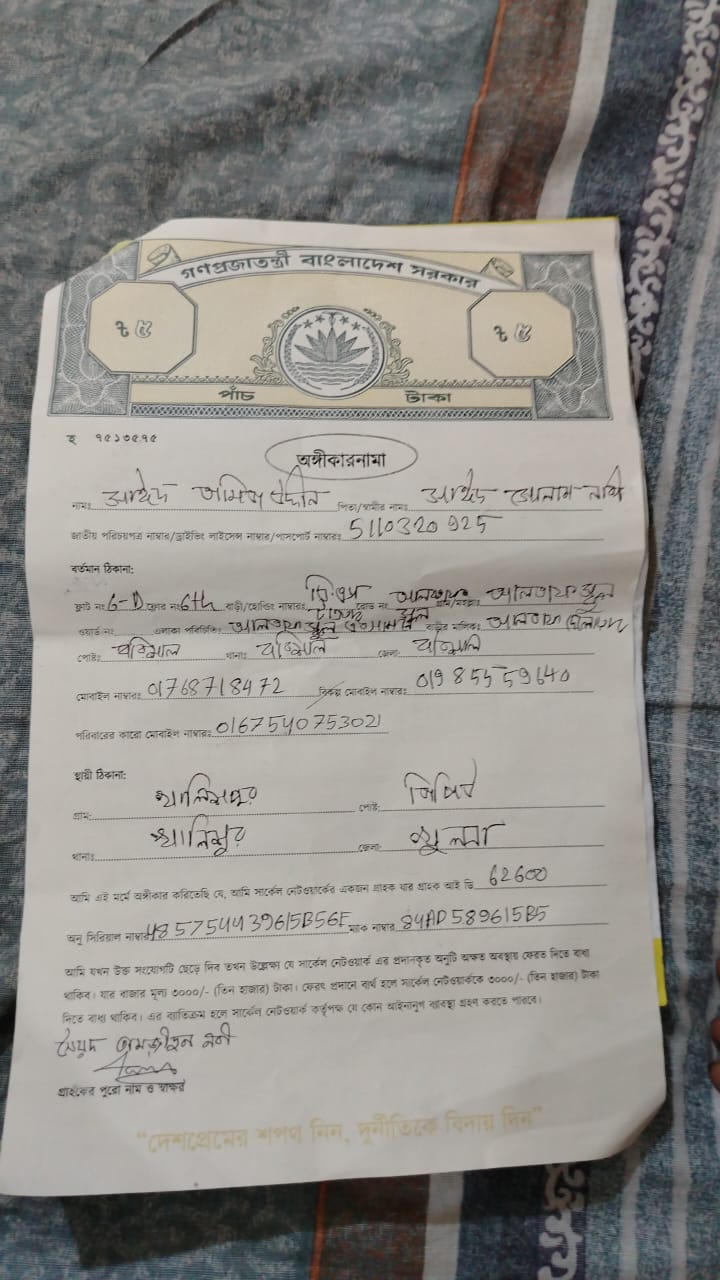 গণপ্রজাতন্ত্রী বাংলাদেশ সরকার
৳ ৫ ৳ ৫
পাঁচ টাকা
হ ৭৫১৩৫৭৫
অঙ্গীকারনামা
নামঃ পিতা/স্বামীর নামঃ
জাতীয় পরিচয়পত্র নাম্বার/ড্রাইভিং লাইসেন্স নাম্বার/পাসপোর্ট নাম্বারঃ 5110320925
বর্তমান ঠিকানা:
ফ্লাট নংঃ 6-D ফ্লোর নংঃ 6th বাড়ী/হোল্ডিং নাম্বারঃ রোড নং আলতাফ স্কুল
ওয়ার্ড নংঃ এলাকা পরিচিতিঃ আলতাফ স্কুল বাড়ীর মালিকঃ আলতাফ
পোষ্টঃ বরিশাল থানাঃ বরিশাল জেলাঃ বরিশাল
মোবাইল নাম্বারঃ 01768718472 বিকল্প মোবাইল নাম্বারঃ 01985559640
পরিবারের কারো মোবাইল নাম্বারঃ 016754075302
স্থায়ী ঠিকানা:
গ্রাম: খালিশপুর পোষ্ট:
থানাঃ খালিশপুর জেলা: খুলনা
আমি এই মর্মে অঙ্গীকার করিতেছি যে, আমি সার্কেল নেটওয়ার্কের একজন গ্রাহক যার গ্রাহক আই ডি 62600
অনু সিরিয়াল নাম্বার 485754439615B56F ম্যাক নাম্বার 84AD589615B5
আমি যখন উক্ত সংযোগটি ছেড়ে দিব তখন উল্লেক্ষ্য যে সার্কেল নেটওয়ার্ক এর প্রদানকৃত অনুটি অক্ষত অবস্থায় ফেরত দিতে বাধ্য
থাকিব। যার বাজার মূল্য ৩০০০/- (তিন হাজার) টাকা। ফেরৎ প্রদানে ব্যর্থ হলে সার্কেল নেটওয়ার্ককে ৩০০০/- (তিন হাজার) টাকা
দিতে বাধ্য থাকিব। এর ব্যতিক্রম হলে সার্কেল নেটওয়ার্ক কর্তৃপক্ষ যে কোন আইনানুগ ব্যবস্থা গ্রহণ করতে পারবে।
সৈয়দ নবী
গ্রাহকের পুরো নাম ও স্বাক্ষর
“দেশপ্রেমের শপথ নিন, দুর্নীতিকে বিদায় দিন”